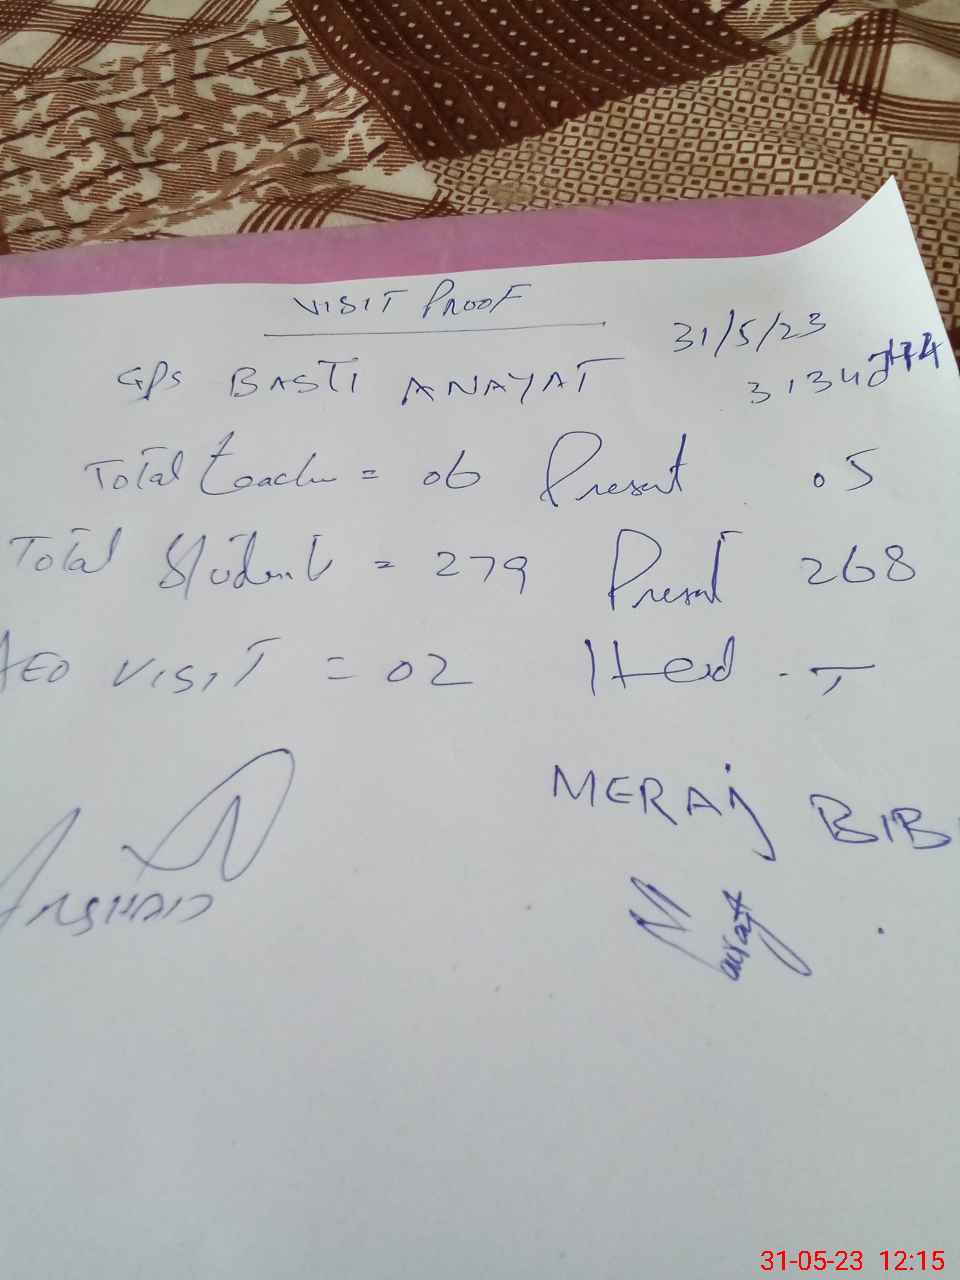 VISIT PROOF
31/5/23
GPS BASTI ANAYAT
Total teacher = 06 Present 05
Total Student = 279 Present 268
AEO VISIT = 02 Head - T
MERAJ BIBI
ARSHAD
31-05-23 12:15